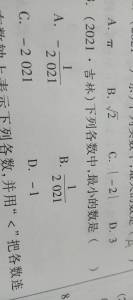 A. π B. √2 C. |-2| D. 3
(2021·吉林)下列各数中,最小的数是( )
A. -1/2 021 B. 1/2 021
C. -2 021 D. -1
轴上表示下列各数,并用“<”把各数连